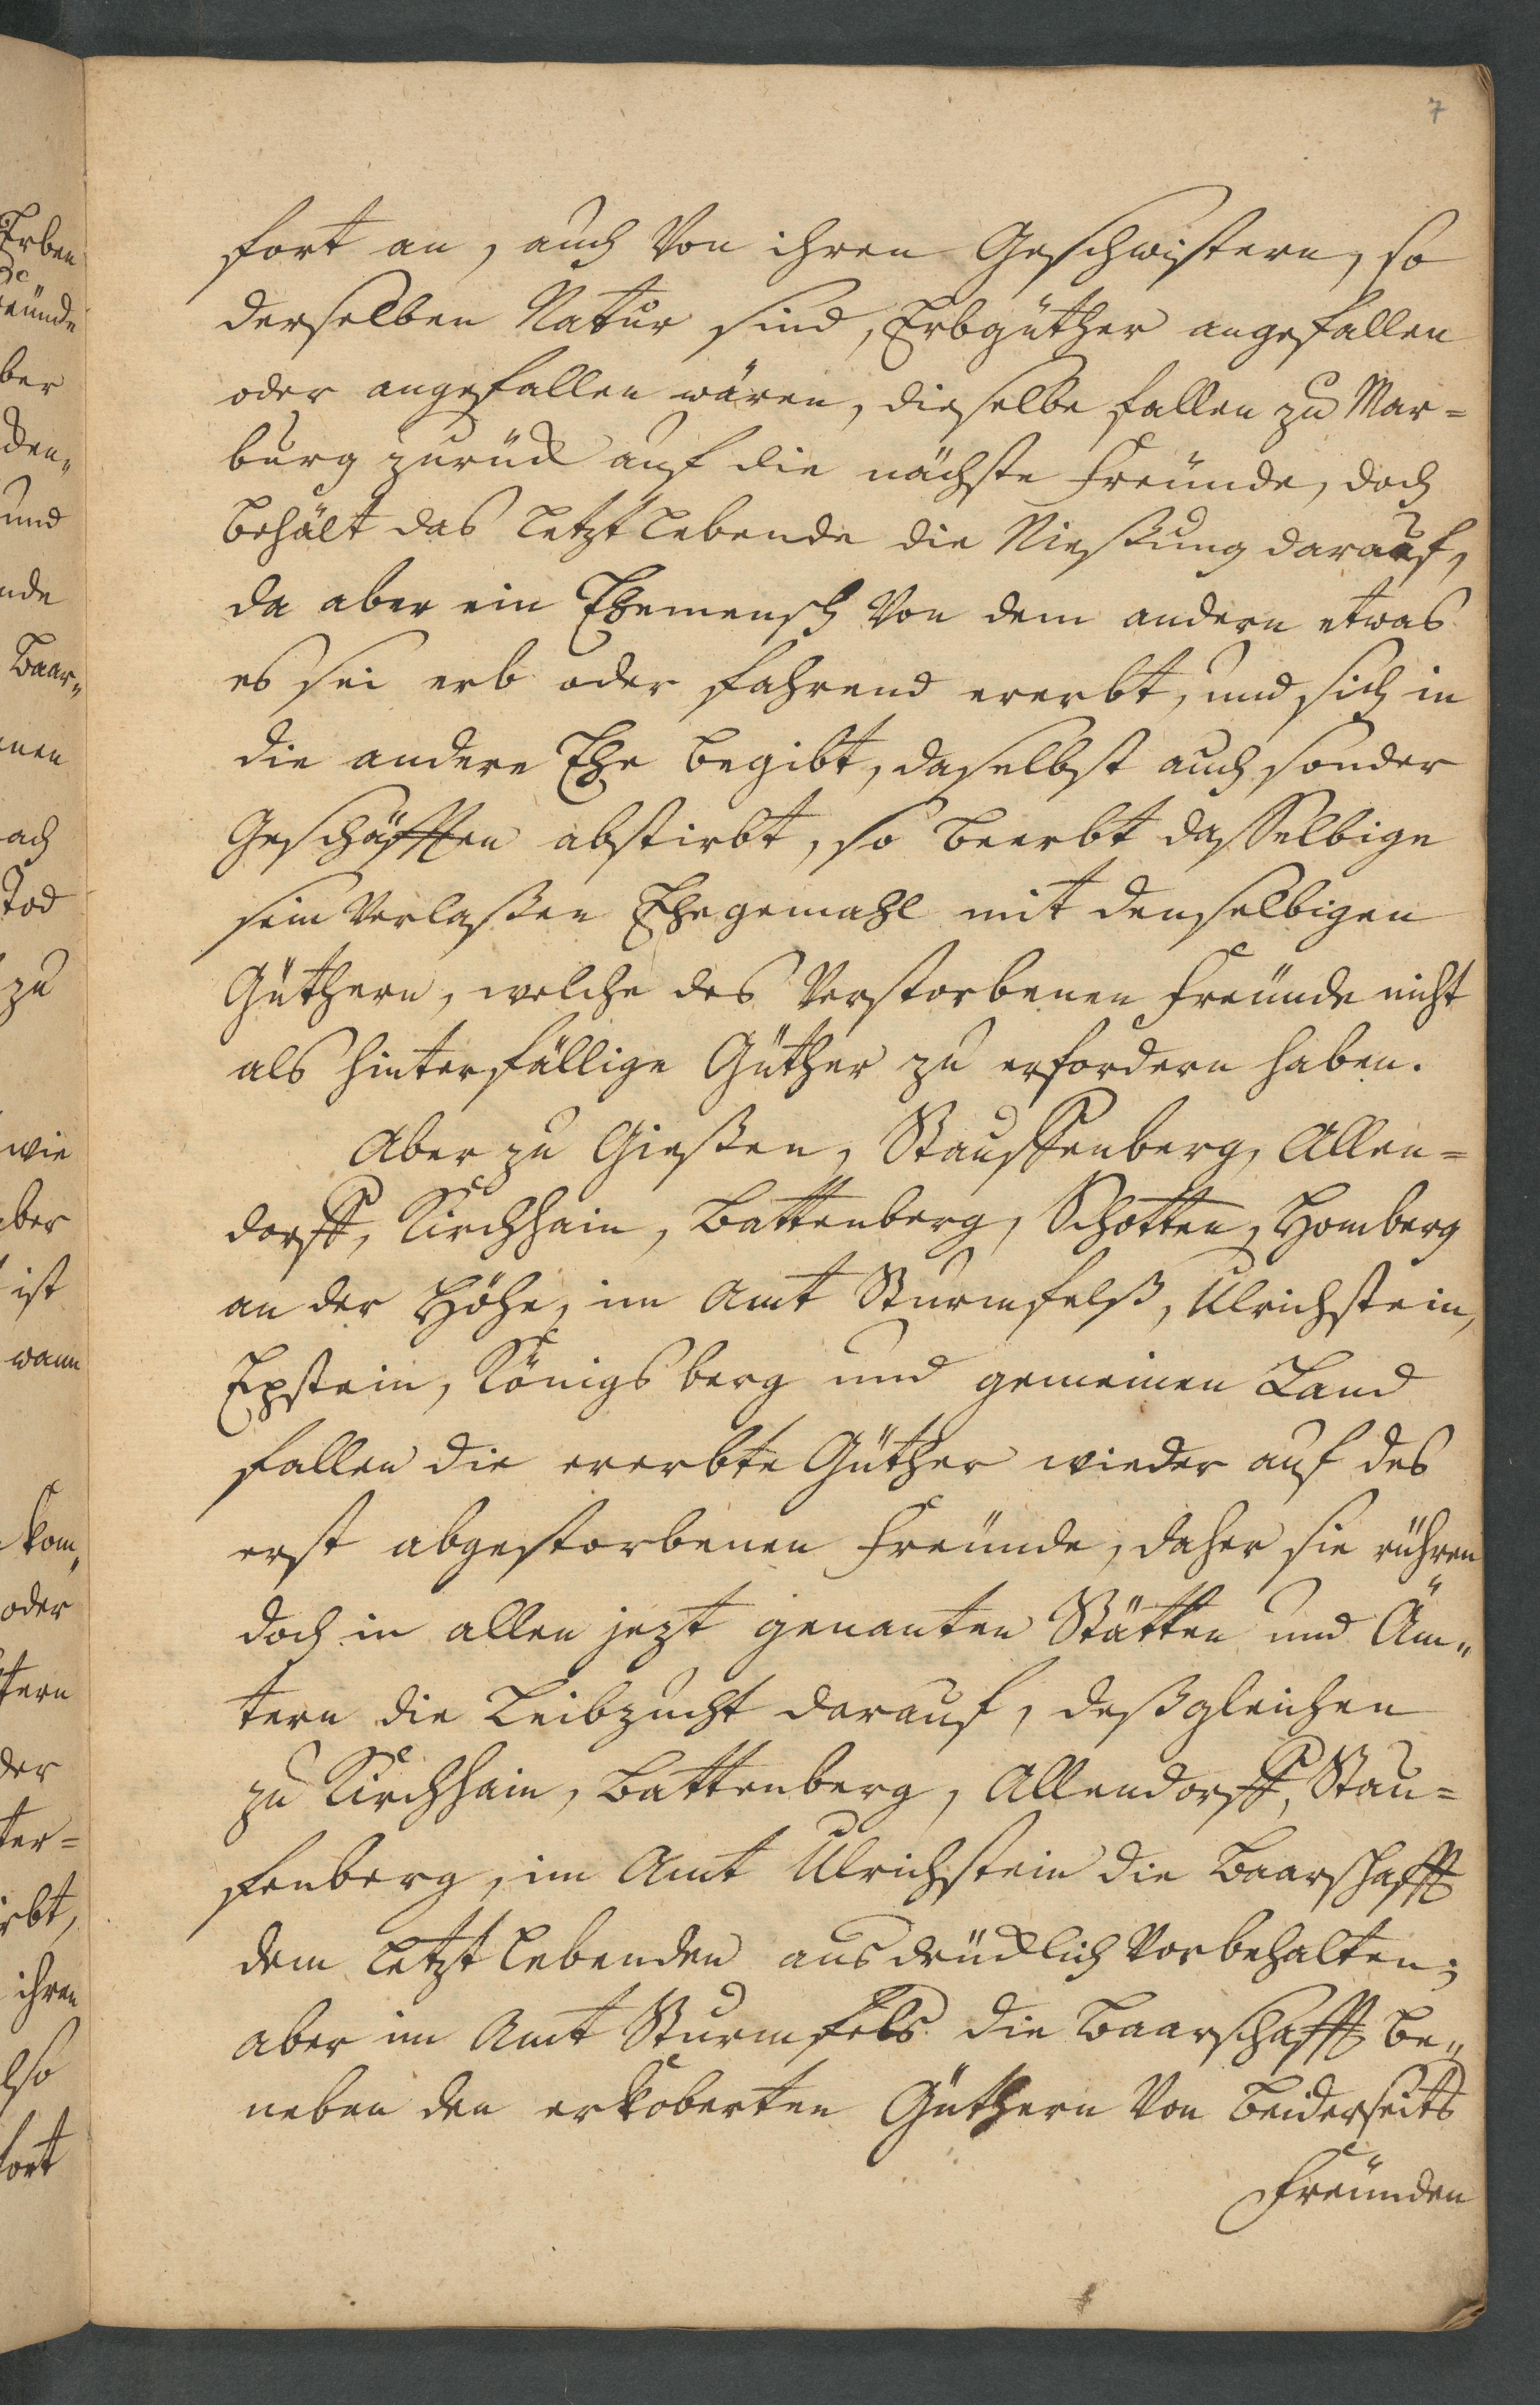 7
fort an, auch Von ihren Geschwistern, so
derselben Natur sind, Erbgüther angefallen
oder angefallen wären, dieselbe fallen zu Mar=
burg zurück auf die nächste Freünde, doch
behält das letztlebende die Nießung darauf,
da aber ein Ehemensch Von dem andern etwas
es sei erb oder fahrend ererbt, und sich in
die andere Ehe begibt, daselbst auch sonder
Geschäfften abstirbt, so beerbt dasselbige
sein Verlaßen Ehegemahl mit denselbigen
Güthern, welche des Verstorbenen Freünde nicht
als hinterfällige Güther zu erfordern haben.
Aber zu Gießen, Stauffenberg, Allen=
dorff, Kirchhain, Battenberg, Schotten, Homberg
an der Höhe, im Amt Sturmfelß, Ulrichstein,
Epstein, Königsberg und gemeinen Land
fallen die ererbte Güther wieder auf des
erst abgestorbenen Freünde, daher sie rühren
doch in allen jezt genanten Stätten und Äm„
tern die Leibzucht darauf, deßgleichen
zu Kirchhain, Battenberg, Allendorff, Stau=
fenberg, im Amt Ulrichstein die Baarschafft
dem letztlebenden ausdrücklich Vorbehalten;
aber im Amt Sturmfels die Baarschafft be„
neben den erkoberten Güthern Von beiderseits
Freünden
Erben
eünde
ber
den„
und
nde
Baar„
nen
ach
Tod
zu
wie
aber
ist
wann
kom„
oder
tern
der
ter=
rbt,
ihren
lso
fort